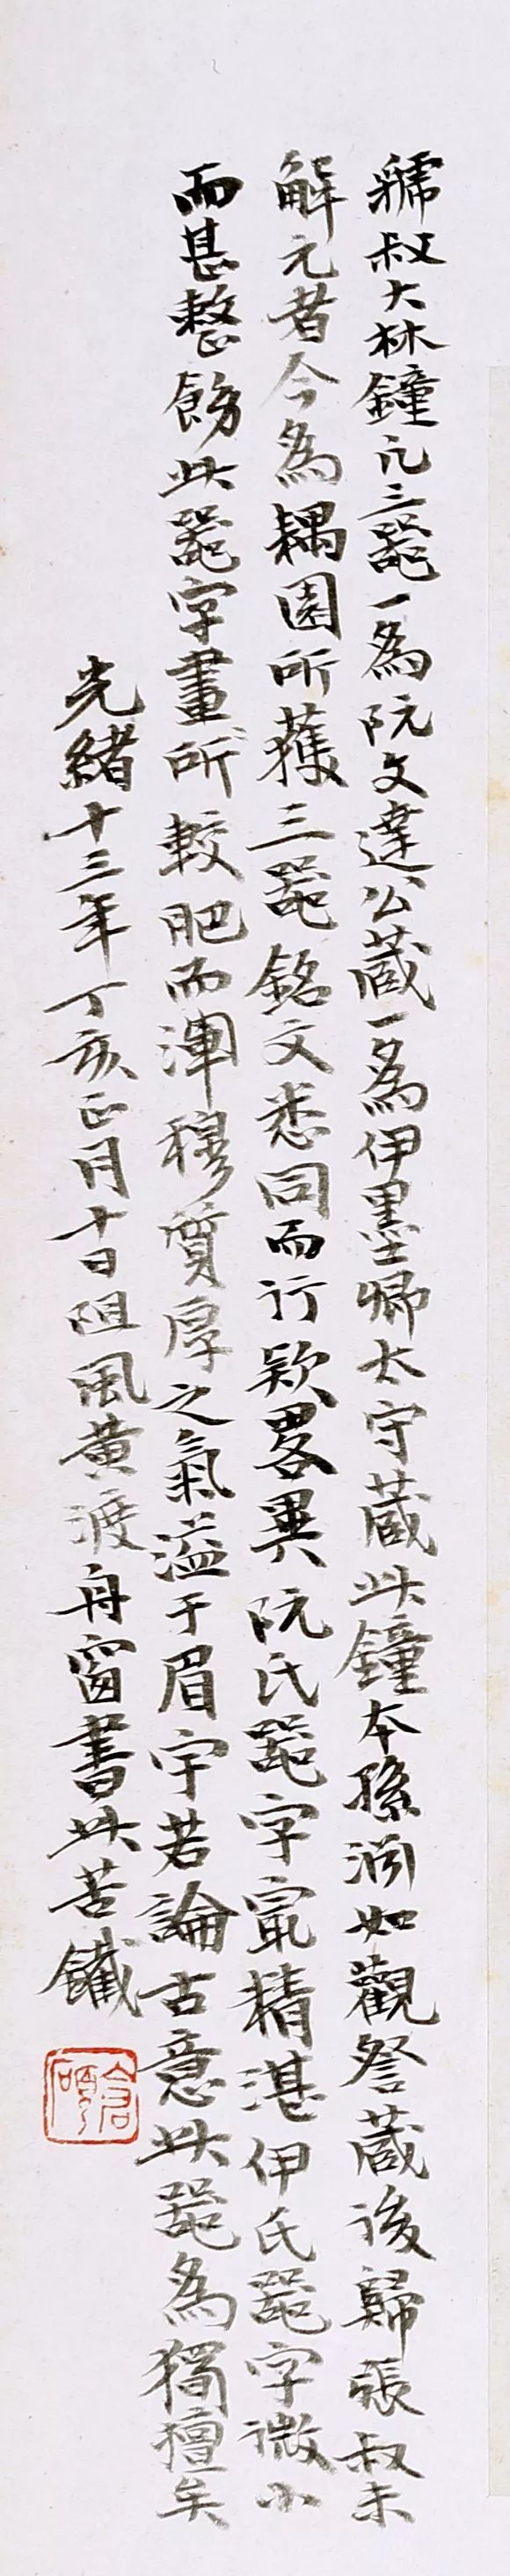 虢叔大林鐘凡三器一為阮文達公蔵一為伊墨卿太守蔵此鐘本孫淵如觀詧蔵後歸張叔未
解元者今為耦園所獲三器銘文悉同而行款畧異阮氏器字㝡精湛伊氏器字微小
而甚整飭此器字畫所較肥而渾穆質厚之氣溢于眉宇若論古意此器為獨擅矣
光緒十三年丁亥正月十日阻風黃渡舟窗書此苦鐵
倉碩